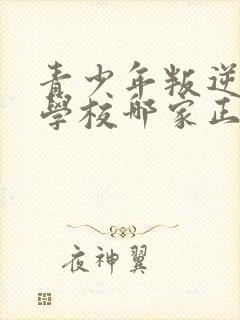 青少年叛逆
學校哪家正
夜神翼